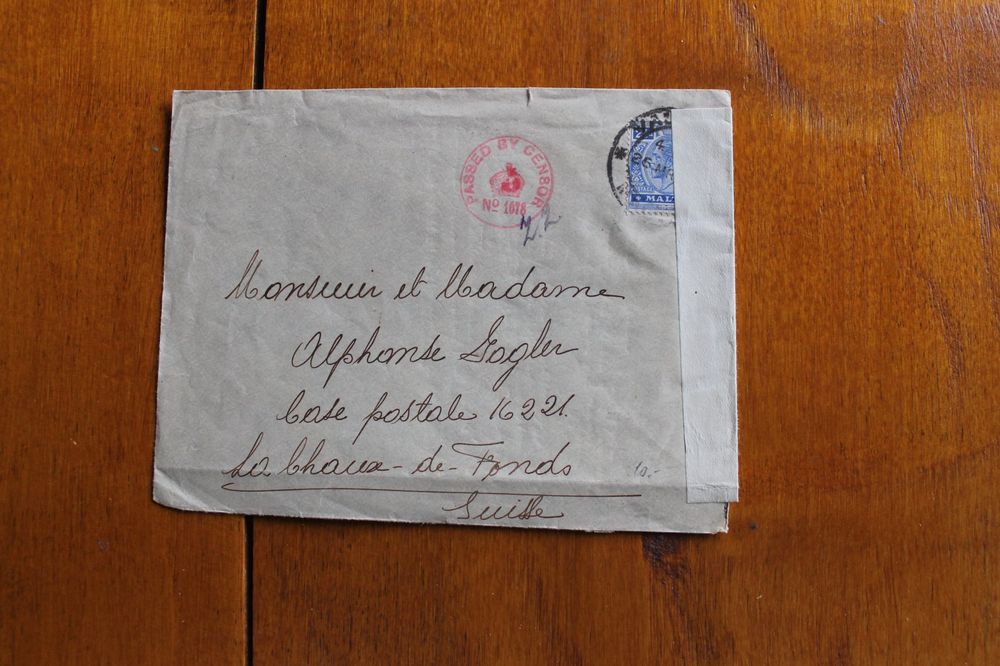 PASSED BY CENSOR
Nº 1678
4
MAL
Monsieur et Madame
Alphonse Gogler
Case postale 16221.
La Chaux-de-Fonds
Suisse
10.-